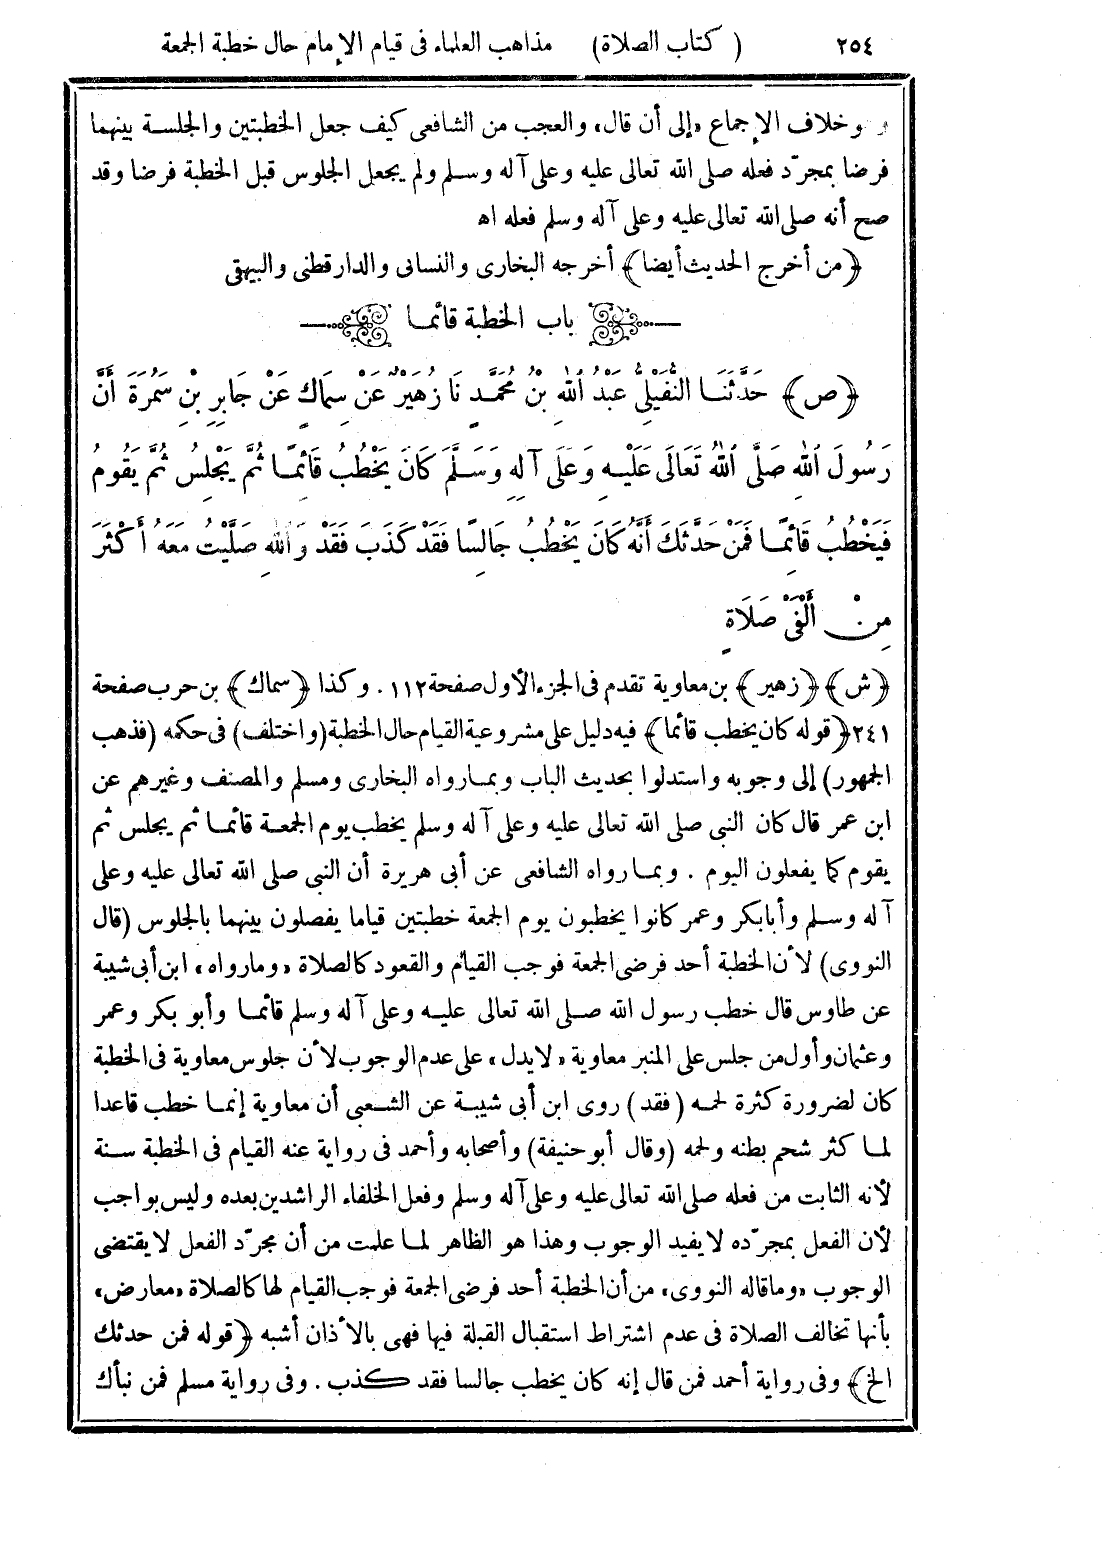 ٢٥٤ (كتاب الصلاة) مذاهب العلماء فى قيام الإمام حال خطبة الجمعة
وخلاف الإجماع «إلى أن قال» والعجب من الشافعى كيف جعل الخطبتين والجلسة بينهما
فرضا بمجرّد فعله صلى الله تعالى عليه وعلى آله وسلم ولم يجعل الجلوس قبل الخطبة فرضا وقد
صح أنه صلى الله تعالى عليه وعلى آله وسلم فعله اه
﴿من أخرج الحديث أيضا﴾ أخرجه البخارى والنسائى والدارقطنى والبيهقى
باب الخطبة قائما
﴿ص﴾ حَدَّثَنَا النُّفَيْلِيُّ عَبْدُ اللهِ بْنُ مُحَمَّدٍ نَا زُهَيْرٌ عَنْ سِمَاكٍ عَنْ جَابِرِ بْنِ سَمُرَةَ أَنَّ
رَسُولَ اللهِ صَلَّى اللهُ تَعَالَى عَلَيْهِ وَعَلَى آلِهِ وَسَلَّمَ كَانَ يَخْطُبُ قَائِمًا ثُمَّ يَجْلِسُ ثُمَّ يَقُومُ
فَيَخْطُبُ قَائِمًا فَمَنْ حَدَّثَكَ أَنَّهُ كَانَ يَخْطُبُ جَالِسًا فَقَدْ كَذَبَ فَقَدْ وَاللهِ صَلَّيْتُ مَعَهُ أَكْثَرَ
مِنْ أَلْفَىْ صَلَاةٍ
﴿ش﴾ ﴿زهير﴾ بن معاوية تقدم فى الجزء الأول صفحة ١١٢ . وكذا ﴿سماك﴾ بن حرب صفحة
٢٤١ ﴿قوله كان يخطب قائما﴾ فيه دليل على مشروعية القيام حال الخطبة (واختلف) فى حكمه (فذهب
الجمهور) إلى وجوبه واستدلوا بحديث الباب وبما رواه البخارى ومسلم والمصنف وغيرهم عن
ابن عمر قال كان النبى صلى الله تعالى عليه وعلى آله وسلم يخطب يوم الجمعة قائما ثم يجلس ثم
يقوم كما يفعلون اليوم . وبما رواه الشافعى عن أبى هريرة أن النبى صلى الله تعالى عليه وعلى
آله وسلم وأبابكر وعمر كانوا يخطبون يوم الجمعة خطبتين قياما يفصلون بينهما بالجلوس (قال
النووى) لأن الخطبة أحد فرضى الجمعة فوجب القيام والقعود كالصلاة «وما رواه» ابن أبى شيبة
عن طاوس قال خطب رسول الله صلى الله تعالى عليه وعلى آله وسلم قائما وأبو بكر وعمر
وعثمان وأول من جلس على المنبر معاوية «لا يدل» على عدم الوجوب لأن جلوس معاوية فى الخطبة
كان لضرورة كثرة لحمه (فقد) روى ابن أبى شيبة عن الشعبى أن معاوية إنما خطب قاعدا
لما كثر شحم بطنه ولحمه (وقال أبو حنيفة) وأصحابه وأحمد فى رواية عنه القيام فى الخطبة سنة
لأنه الثابت من فعله صلى الله تعالى عليه وعلى آله وسلم وفعل الخلفاء الراشدين بعده وليس بواجب
لأن الفعل بمجرّده لا يفيد الوجوب وهذا هو الظاهر لما علمت من أن مجرّد الفعل لا يقتضى
الوجوب «وما قاله النووى» من أن الخطبة أحد فرضى الجمعة فوجب القيام لها كالصلاة «معارض»
بأنها تخالف الصلاة فى عدم اشتراط استقبال القبلة فيها فهى بالأذان أشبه ﴿قوله فمن حدثك
الخ﴾ وفى رواية أحمد فمن قال إنه كان يخطب جالسا فقد كذب . وفى رواية مسلم فمن نبأك